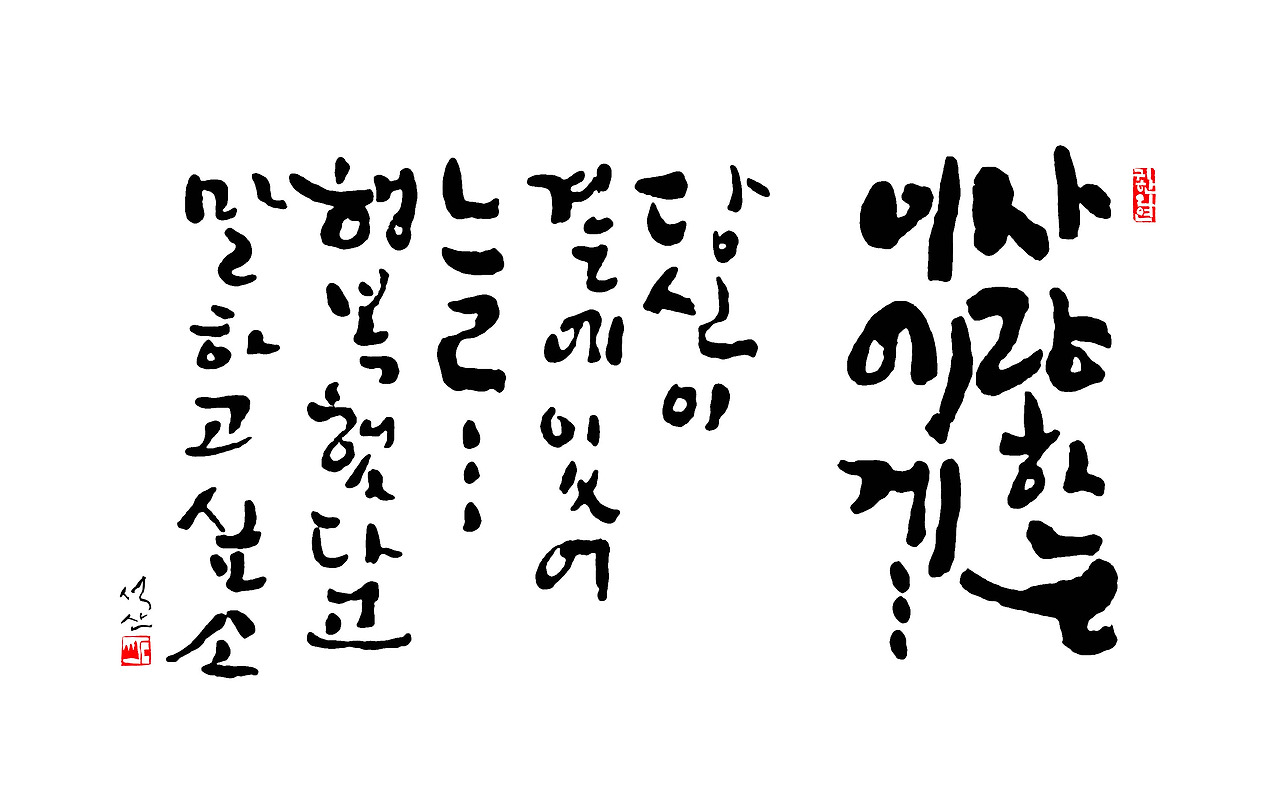 사랑하는
이에게...
당신이
곁에 있어
늘...
행복했다고
말하고 싶소
석산